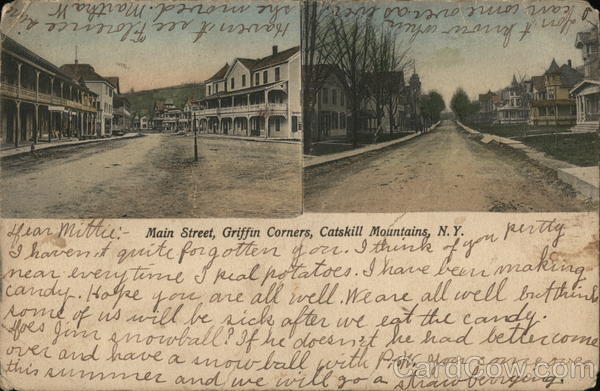 haven't see Florence since
she moved. Martha W
Don't know when
I can come over as ever,
Dear Mittie:- Main Street, Griffin Corners, Catskill Mountains, N.Y.
I haven't quite forgotten you. I think of you pretty
near everytime I peal potatoes. I have been making
candy. Hope you are all well. We are all well but think
some of us will be sick after we eat the candy.
Does Jim snowball? If he doesn't he had better come
over and have a snowball with Pop. You come over
this summer and we will go a strawberrying.
CardCow.com